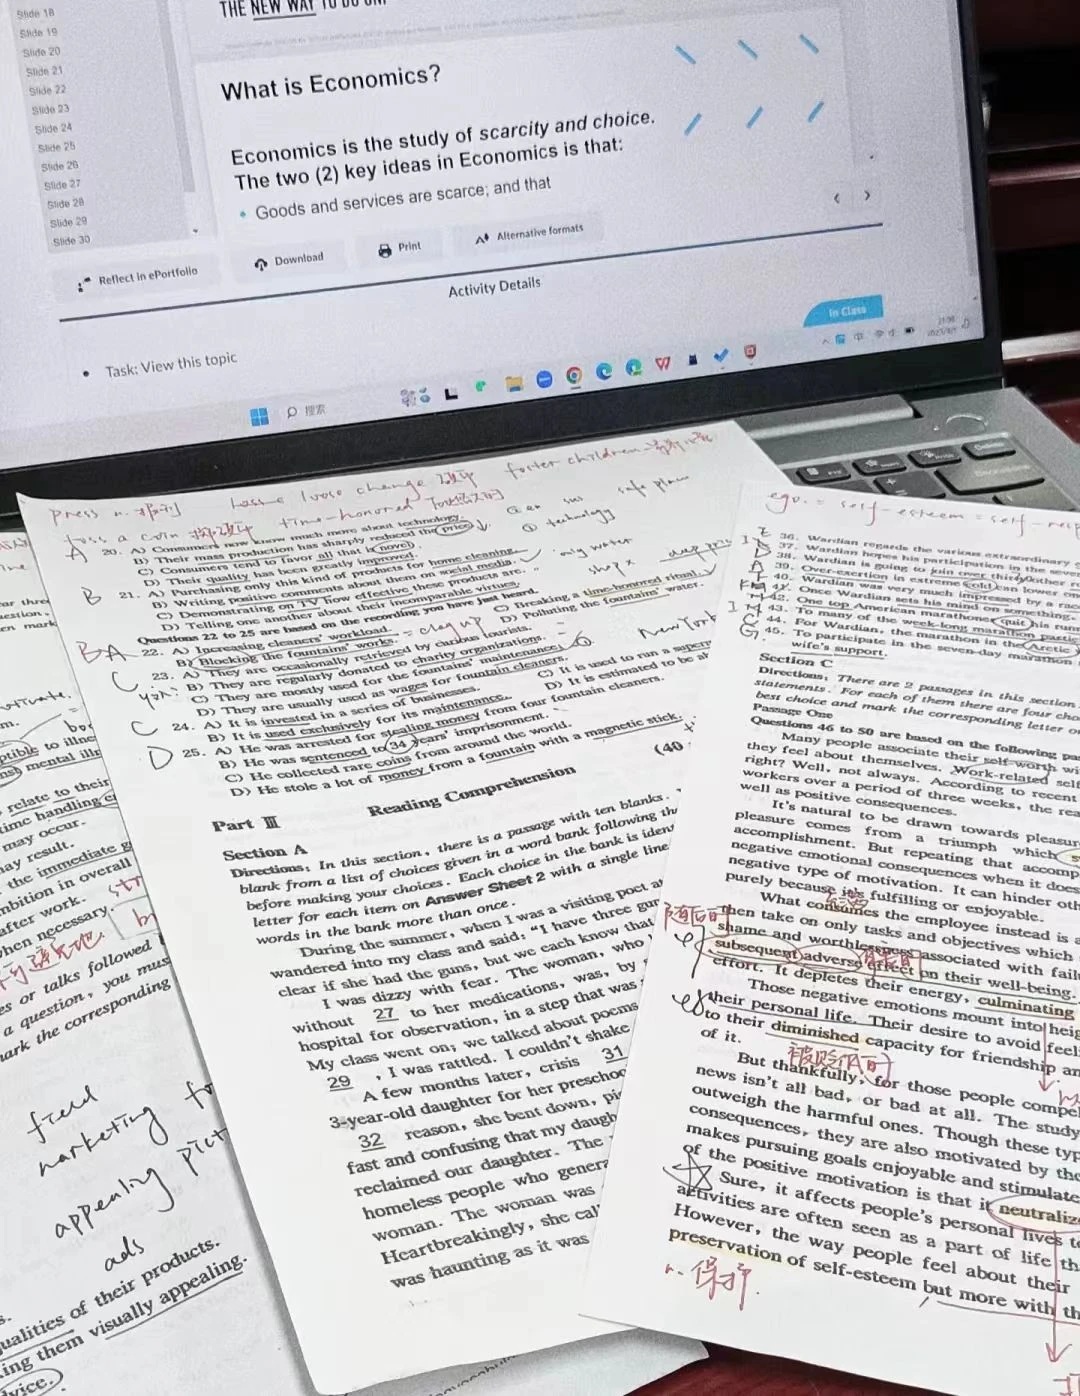 Slide 18
Slide 19
Slide 20
Slide 21
Slide 22
Slide 23
Slide 24
Slide 25
Slide 26
Slide 27
Slide 28
Slide 29
Slide 30
THE NEW WAY TO DO UNI
What is Economics?
Economics is the study of scarcity and choice.
The two (2) key ideas in Economics is that:
• Goods and services are scarce; and that
Reflect in ePortfolio
Download
Print
Alternative formats
Activity Details
• Task: View this topic
In Class
搜索
press n.
loose change
foster children
toss a coin
time-honored
technology
safe
A 20. A) Consumers now know much more about technology.
B) Their mass production has sharply reduced the price.
C) Consumers tend to favor all that is novel.
D) Their quality has been greatly improved.
B 21. A) Purchasing only this kind of products for home cleaning.
B) Writing positive comments about them on social media.
C) Demonstrating on TV how effective these products are.
D) Telling one another about their incomparable virtues.
Questions 22 to 25 are based on the recording you have just heard.
BA 22. A) Increasing cleaners' workload.
C) Breaking a time-honored ritual.
B) Blocking the fountains' works.
D) Polluting the fountains' water
New York
C 23. A) They are occasionally retrieved by curious tourists.
B) They are regularly donated to charity organizations.
C) They are mostly used for the fountains' maintenance.
D) They are usually used as wages for fountain cleaners.
C 24. A) It is invested in a series of businesses.
C) It is used to run a superm
B) It is used exclusively for its maintenance.
D) It is estimated to be
D 25. A) He was arrested for stealing money from four fountain cleaners.
B) He was sentenced to 34 years' imprisonment.
C) He collected rare coins from around the world.
D) He stole a lot of money from a fountain with a magnetic stick.
(40
Part Ⅲ Reading Comprehension
Section A
Directions: In this section, there is a passage with ten blanks.
blank from a list of choices given in a word bank following the
before making your choices. Each choice in the bank is ident
letter for each item on Answer Sheet 2 with a single line
words in the bank more than once.
During the summer, when I was a visiting poet a
wandered into my class and said: "I have three gun
clear if she had the guns, but we each know that
I was dizzy with fear. The woman, who
without 27 to her medications, was, by
hospital for observation, in a step that was
My class went on; we talked about poems
29 , I was rattled. I couldn't shake
A few months later, crisis 31
3-year-old daughter for her preschoo
32 reason, she bent down, pi
fast and confusing that my daugh
reclaimed our daughter. The
homeless people who genera
woman. The woman was
Heartbreakingly, she cal
was haunting as it was
ego. = self-esteem = self-resp
36. Wardian regards the various extraordinary
37. Wardian hopes his participation in the seven
38. Wardian is going to join over thirty other
39. Over-exertion in extreme cold can lower on
40. Wardian was very much impressed by a rac
41. Once Wardian sets his mind on something,
42. One top American marathoner quit his run
43. To many of the week-long marathon partic
44. For Wardian, the marathon in the Arctic
45. To participate in the seven-day marathon
wife's support.
Section C
Directions: There are 2 passages in this section.
statements. For each of them there are four cho
best choice and mark the corresponding letter o
Passage One
Questions 46 to 50 are based on the following pas
Many people associate their self-worth wi
they feel about themselves. Work-related self
right? Well, not always. According to recent
workers over a period of three weeks, the rea
well as positive consequences.
It's natural to be drawn towards pleasur
pleasure comes from a triumph which
accomplishment. But repeating that accomp
negative emotional consequences when it does
negative type of motivation. It can hinder oth
purely because it's fulfilling or enjoyable.
What consumes the employee instead is a
then take on only tasks and objectives which
shame and worthlessness associated with fail
随后的
subsequent adverse effect on their well-being.
effort. It depletes their energy, culminating
Those negative emotions mount into heig
their personal life. Their desire to avoid feeli
to their diminished capacity for friendship an
of it.
被贬低的
But thankfully, for those people compel
news isn't all bad, or bad at all. The study
outweigh the harmful ones. Though these typ
consequences, they are also motivated by the
makes pursuing goals enjoyable and stimulate
of the positive motivation is that it neutraliz
Sure, it affects people's personal lives to
activities are often seen as a part of life th
However, the way people feel about their
preservation of self-esteem but more with th
n. 保护.
ptible to illne
mental illn
relate to their
time handling
may occur.
may result.
the immediate g
mbition in overall
after work.
when necessary.
es or talks followed
a question, you mus
mark the corresponding
field
marketing
appealing pict
ads
qualities of their products.
king them visually appealing.
vice.